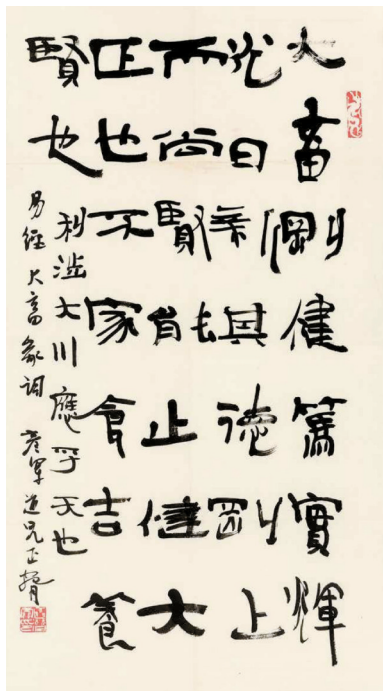 大畜剛健篤實輝
光日新其德剛上
而尚賢能止健大
正也不家食吉養
賢也
利涉大川應乎天也
易經大畜彖詞 彥軍道兄正